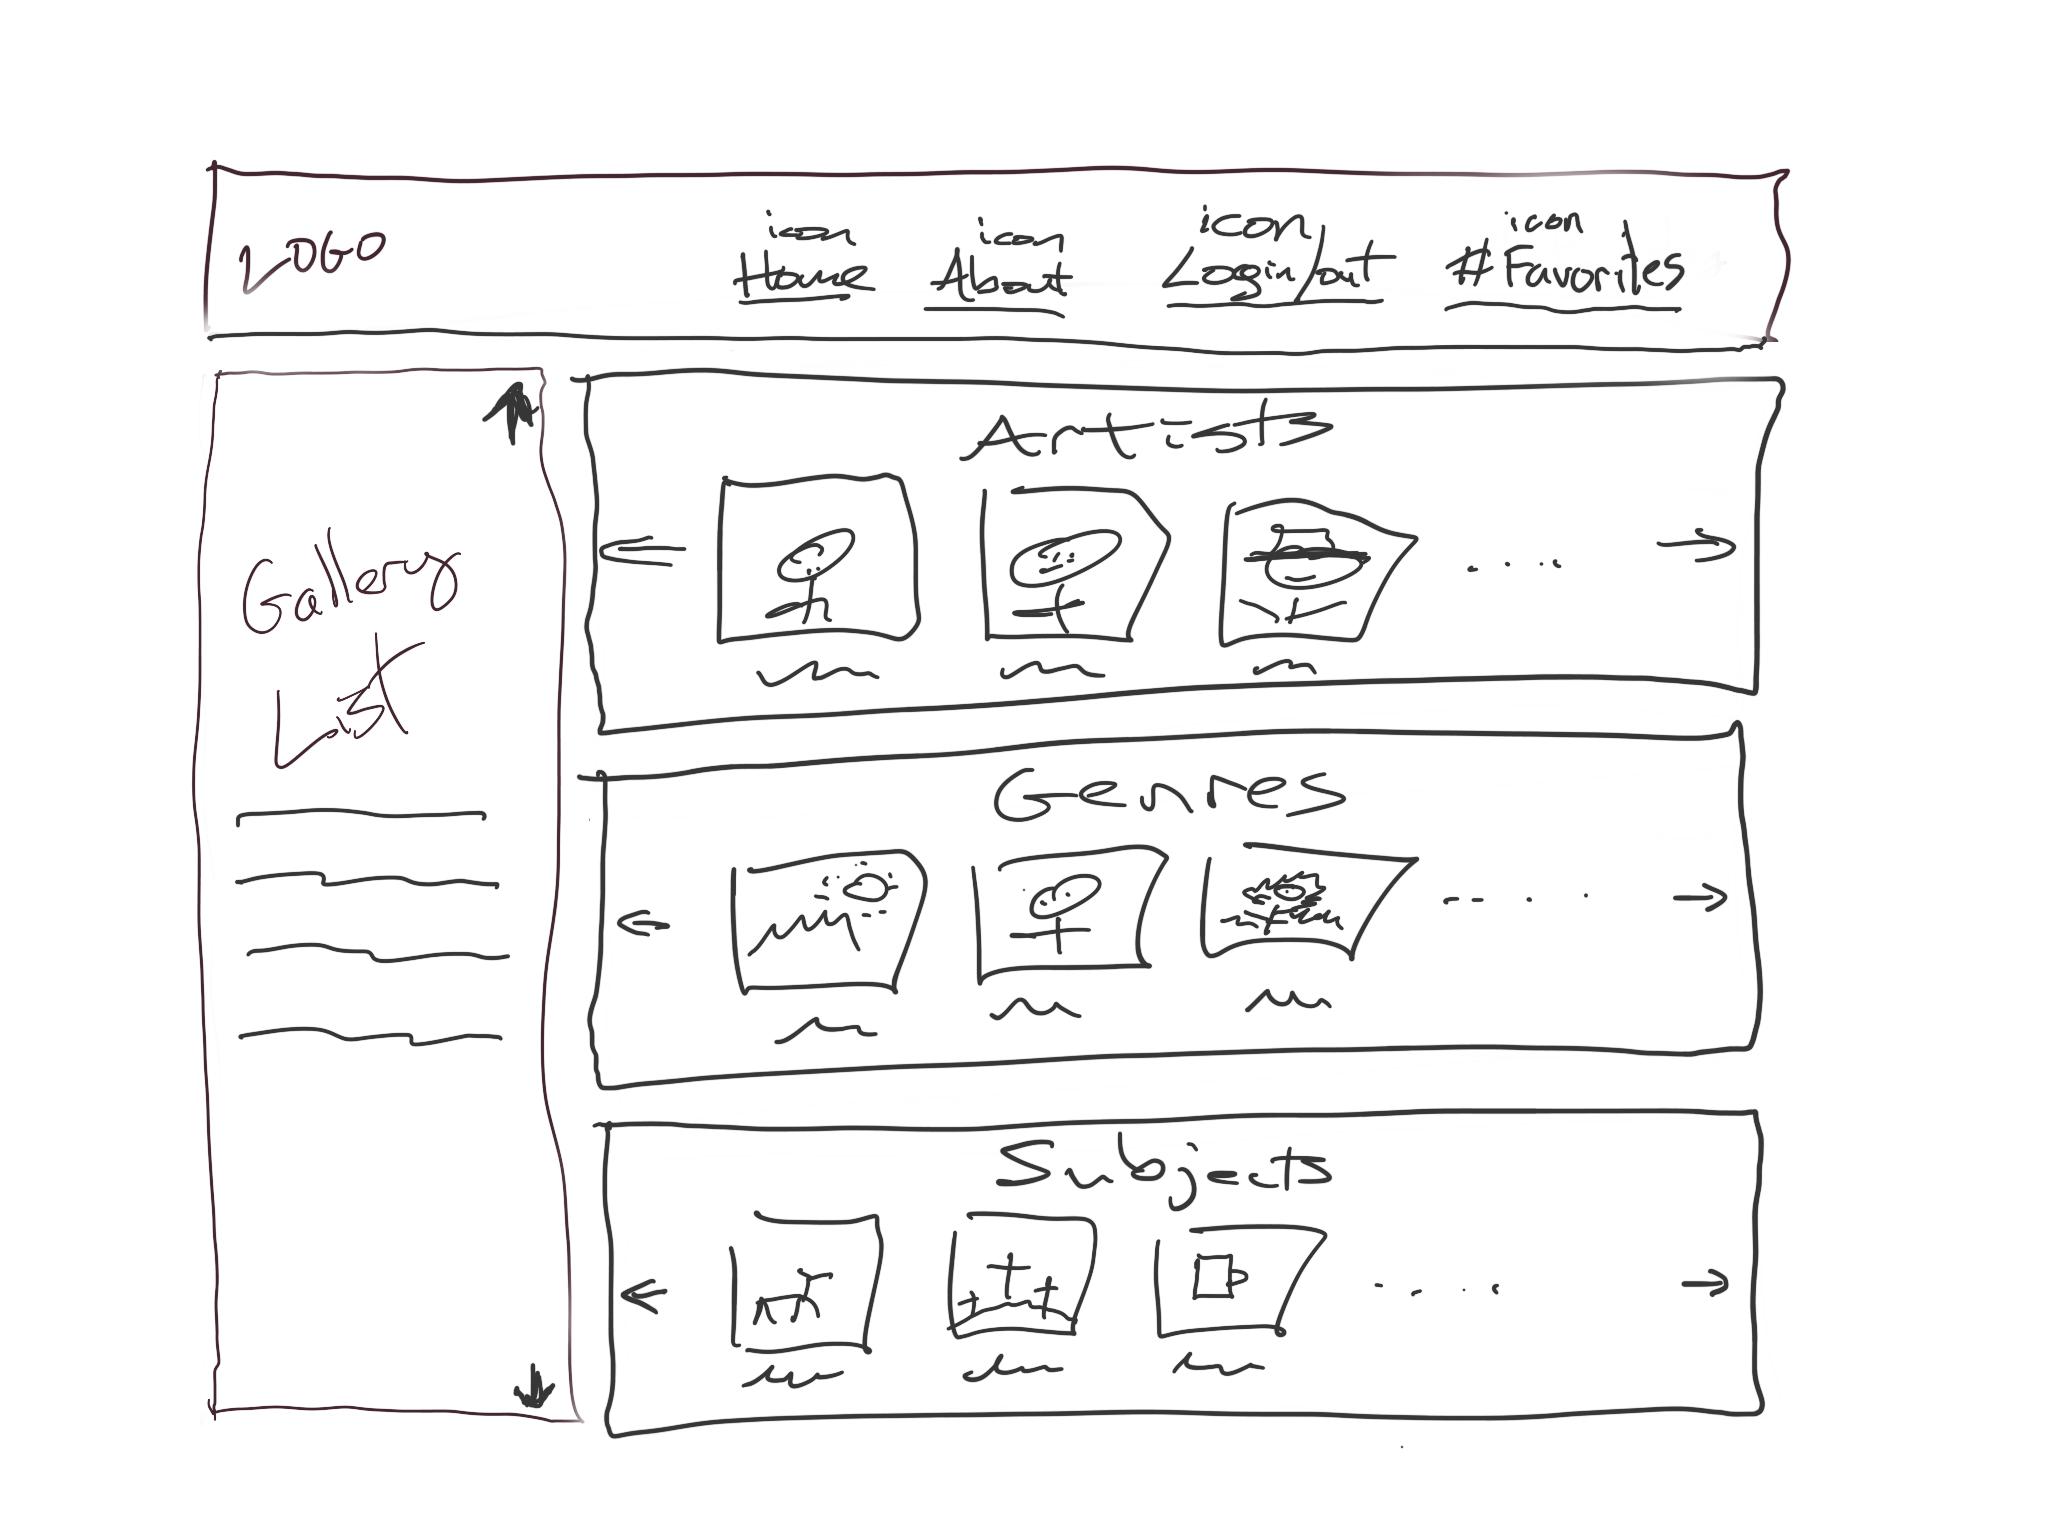 LOGO
icon
Home
icon
About
icon
Login/out
icon
# Favorites
Gallery
List
Artists
Genres
Subjects